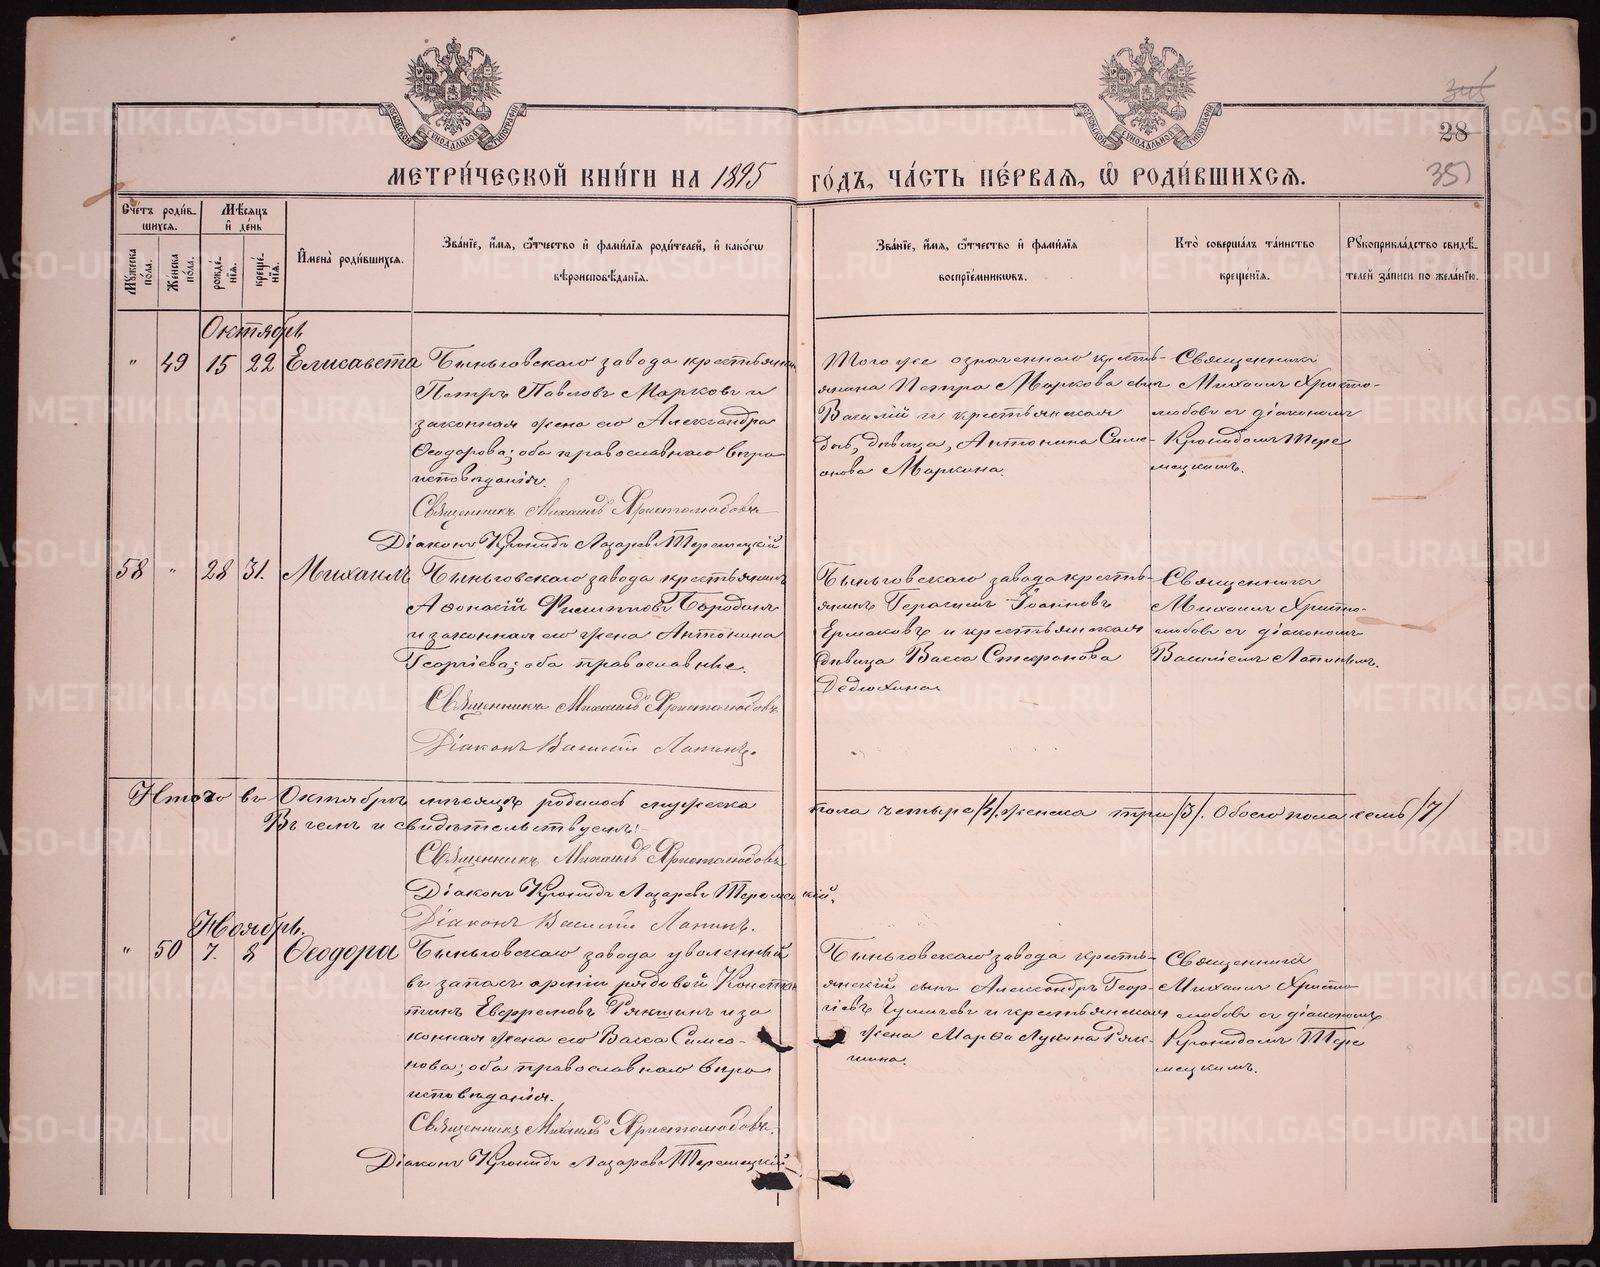 345
28
351
МЕТРИ́ЧЕСКОЙ КНИ́ГИ НА 1895 ГО́ДЪ, ЧА́СТЬ ПЕ́РВАЯ, Ѡ РОДИ́ВШИХСЯ.
Сче́тъ роди́вшихся.
Мѣ́сяцъ и҆ де́нь
Мꙋ́жеска по́ла.
Же́нска по́ла.
рожде́нїя.
креще́нїя.
И҆мена̀ роди́вшихся.
Зва́нїе, и҆́мя, ѻ҆́тчество и҆ фами́лїя роди́телей, и҆ како́гѡ
вѣроисповѣ́данїя.
Зва́нїе, и҆́мя, ѻ҆́тчество и҆ фами́лїя
воспрїе́мникѡвъ.
Кто̀ соверша́лъ та́инство
креще́нїя.
Рꙋкоприкла́дство свидѣ́-
телей за́писи по жела́нїю.
Октябрь
" 49 15 22 Елисавета
Быньговскаго завода крестьянинъ
Петръ Павловъ Марковъ и
законная жена его Александра
Ѳеодорова; оба православнаго вѣро
исповѣданія.
Священникъ Михаилъ Христолюбовъ
Діаконъ Кронидъ Лазаревъ Теремецкій
Того же означеннаго кресть-
янина Петра Маркова сынъ
Василій и крестьянская
дѣвица, Антонина Симе-
онова Маркина.
Священникъ
Михаилъ Христо-
любовъ съ діакономъ
Кронидомъ Тере
мецкимъ.
58 " 28 31. Михаилъ
Быньговскаго завода крестьянинъ
Аѳонасій Филипповъ Бородинъ
и законная его жена Антонина
Георгіева; оба православные.
Священникъ Михаилъ Христолюбовъ
Діаконъ Василій Лапинъ.
Быньговскаго завода кресть-
янинъ Герасимъ Іоанновъ
Ермаковъ и крестьянская
дѣвица Васса Стефанова
Дедюхина
Священникъ
Михаилъ Христо-
любовъ съ діакономъ
Василіемъ Лапинымъ.
Итого въ Октябрѣ мѣсяцѣ родилось мужеска пола четыре /4/. женска три /3/. Обоего пола семь /7/
Въ чемъ и свидѣтельствуемъ:
Священникъ Михаилъ Христолюбовъ
Діаконъ Кронидъ Лазаревъ Теремецкій.
Діаконъ Василій Лапинъ.
Ноябрь.
" 50 7. 8 Ѳеодора
Быньговскаго завода уволенный
въ запасъ арміи рядовой Констан
тинъ Евфремовъ Рякшинъ и за
конная жена его Васса Симео-
нова; оба православнаго вѣро
исповѣданія.
Священникъ Михаилъ Христолюбовъ.
Діаконъ Кронидъ Лазаревъ Теремецкій
Быньговскаго завода кресть-
янскій сынъ Александръ Геор-
гіевъ и крестьянская
жена Марѳа Лукина Ряк-
шина.
Священникъ
Михаилъ Христо
любовъ съ діакономъ
Кронидомъ Тере
мецкимъ.
METRIKI.GASO-URAL.RU